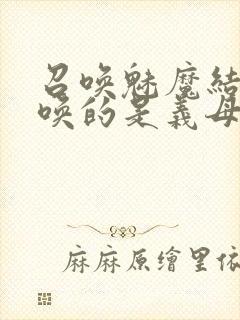 召喚魅魔結
喚的是義母
麻麻原繪里依